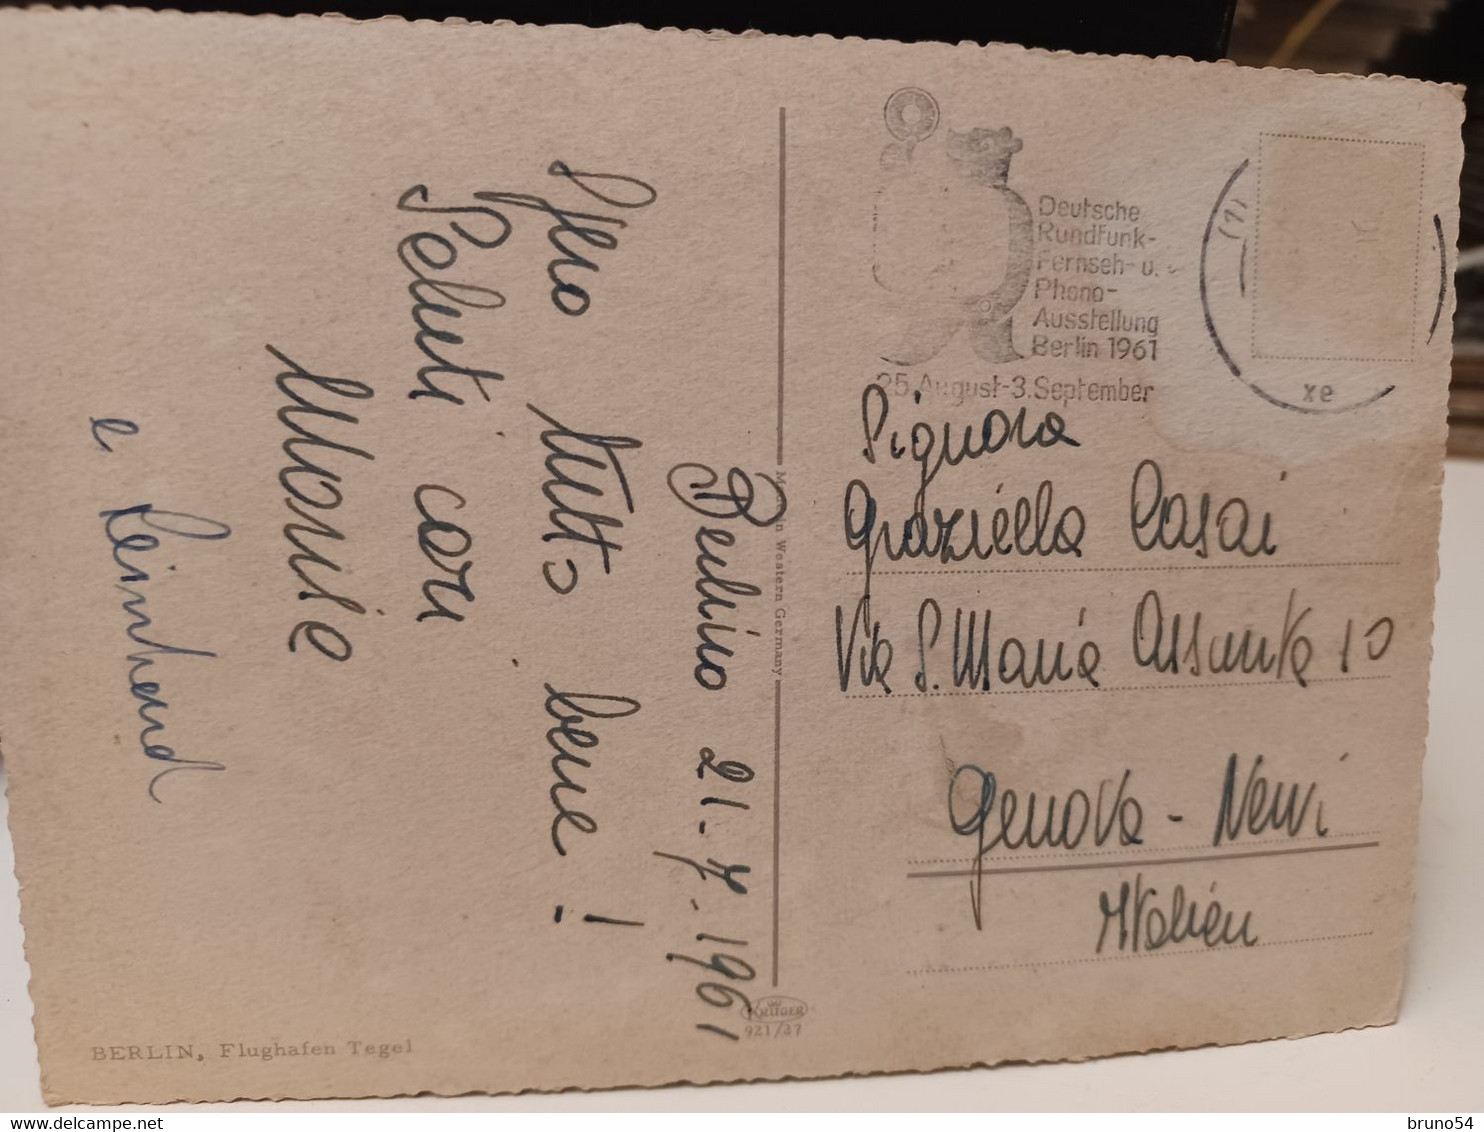 Berlino 21-7.1961
tutto bene!
Saluti cari
e Reinhard
BERLIN, Flughafen Tegel
Made in Western Germany
KRÜGER
921/37
Deutsche
Rundfunk-
Fernseh- u.
Phono-
Ausstellung
Berlin 1961
25. August-3. September
Signora
Graziella Casai
Via S. Maria Assunta 10
Genova - Nervi
Italien
bruno54